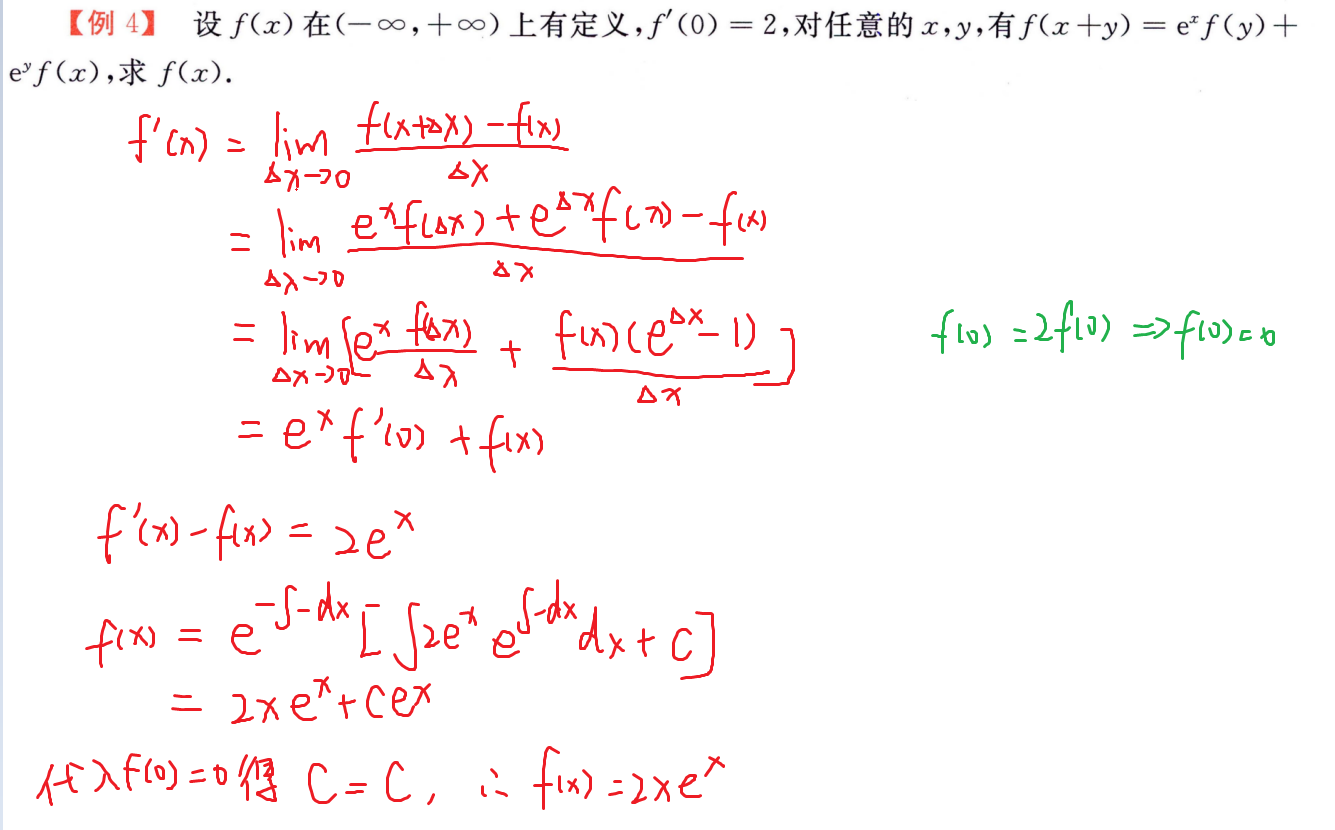 【例 4】 设 f(x) 在(−∞,+∞) 上有定义,f′(0) = 2,对任意的 x,y,有 f(x+y) = eˣf(y)+
eʸf(x),求 f(x).
f'(x) = lim_{Δx→0} \frac{f(x+Δx)-f(x)}{Δx}
= lim_{Δx→0} \frac{e^x f(Δx)+e^{Δx}f(x)-f(x)}{Δx}
= lim_{Δx→0} [e^x \frac{f(Δx)}{Δx} + \frac{f(x)(e^{Δx}-1)}{Δx}]
f(0)=2f(0) ⇒ f(0)=0
= e^x f'(0) + f(x)
f'(x)-f(x) = 2e^x
f(x) = e^{-∫-dx} [∫2e^x e^{∫-dx} dx + C]
= 2xe^x + Ce^x
代入f(0)=0得 C=C, ∴ f(x)=2xe^x